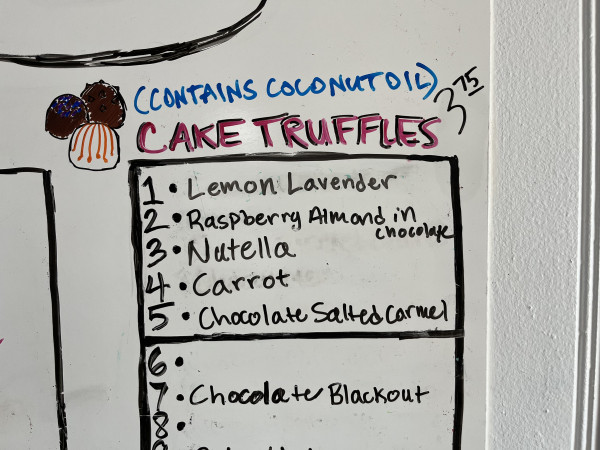 (CONTAINS COCONUT OIL)
CAKE TRUFFLES 3.75
1 • Lemon Lavender
2 • Raspberry Almond in
chocolate
3 • Nutella
4 • Carrot
5 • Chocolate Salted Carmel
6 •
7 • Chocolate Blackout
8 •